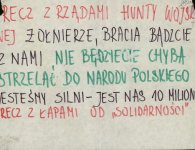 PRECZ Z RZĄDAMI HUNTY WOJS
NEJ ŻOŁNIERZE, BRACIA BĄDŹCIE
Z NAMI NIE BĘDZIECIE CHYBA
STRZELAĆ DO NARODU POLSKIEGO
JESTEŚMY SILNI - JEST NAS 10 MILION
PRECZ Z ŁAPAMI OD „SOLIDARNOŚCI"